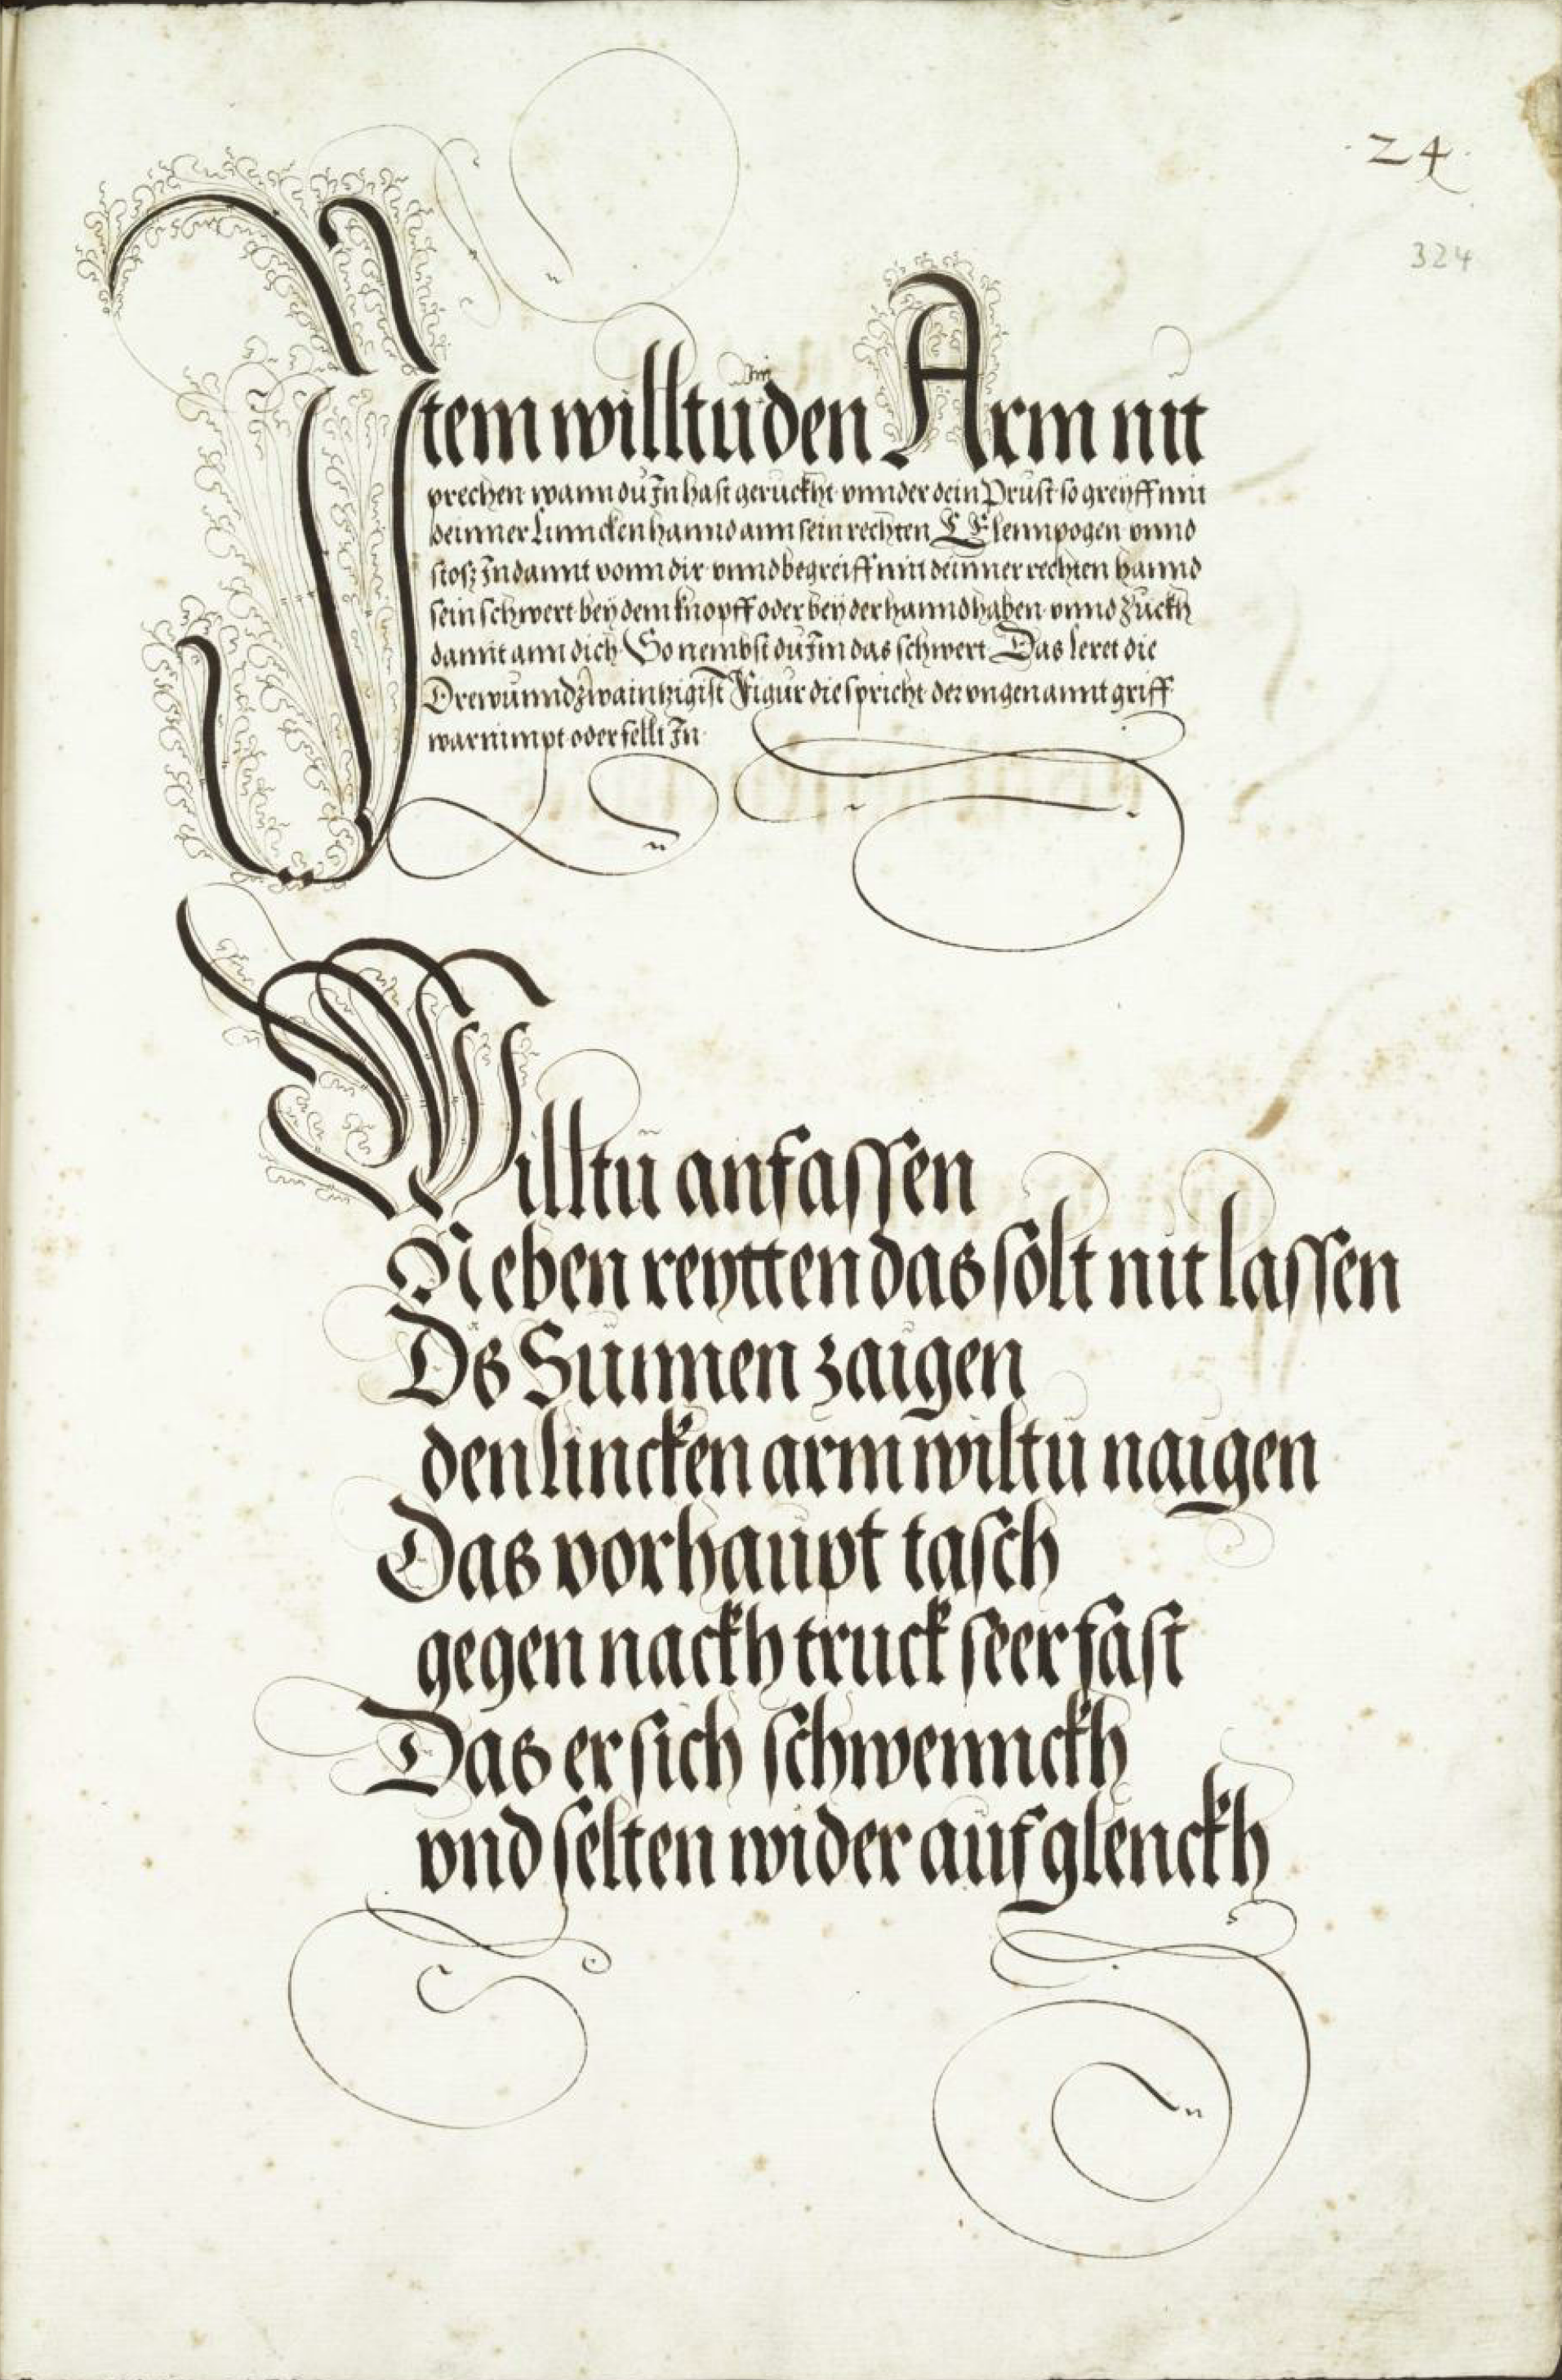 24
324
im
Item willtu den Arm nit
prechen wann du In hast geruckht vnnder dein Prust so greyff mit
deinner Linncken hannd ann sein rechten Elennpogen vnnd
stosz In dannt vonn dir vnnd begreiff mit deinner rechten hannd
sein schwert bey dem knopff oder bey der hanndhaben vnnd Zuckh
damit ann dich So nembst du Im das schwert Das leret die
Drewunndzwaintzigist Figur die spricht der vngenannt griff
war nimpt oder fellt In
Willtu anfassen
Neben reytten das solt nit lassen
Ds Sunnen zaigen
den lincken arm wiltu naigen
Das vorhaupt tasch
gegen nackh truck seer fast
Das er sich schwennckh
vnd selten wider auf glenckh